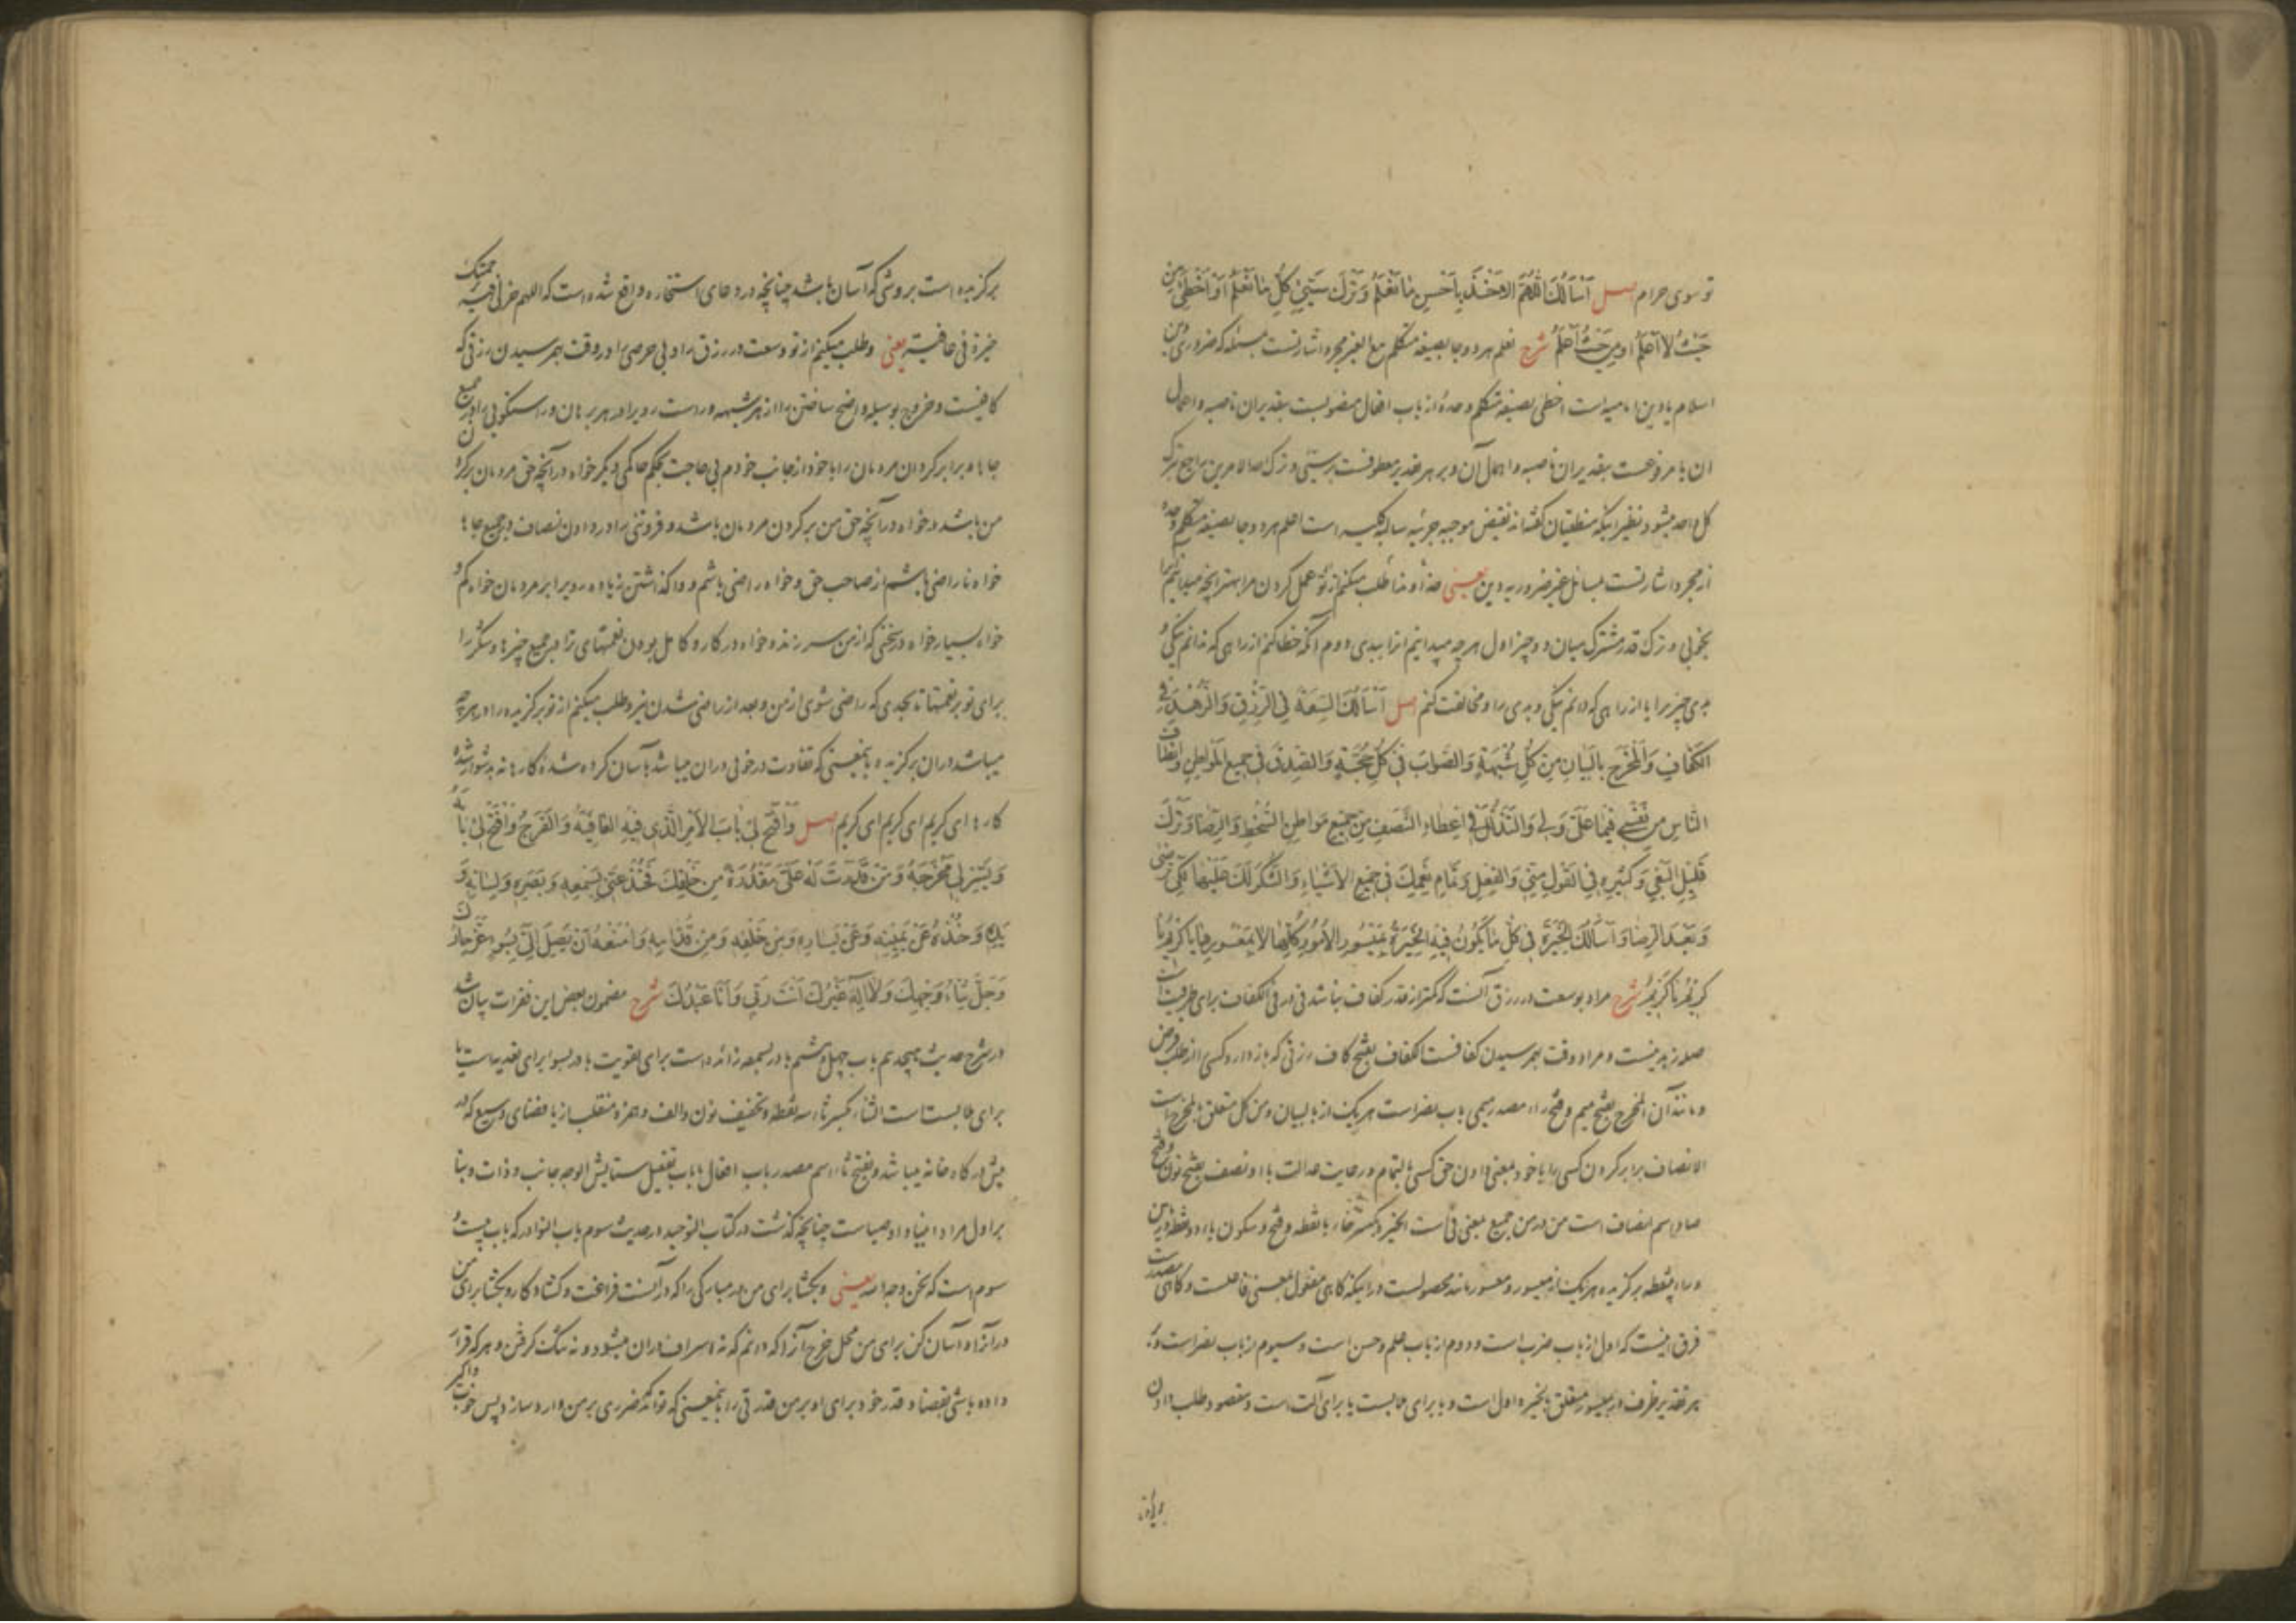 تو سوی حرام اصل أَسْأَلُكَ اللَّهُمَّ الْأَخْذَ بِأَحْسَنِ مَا نَعْلَمُ وَتَرْكَ سَيِّئِ كُلِّ مَا نَعْلَمُ أَوْ أُخْطِئُ مِنْ
حَيْثُ لَا أَعْلَمُ أَوْ مِنْ حَيْثُ أَعْلَمُ شرح نعلم هر دو جا بصیغه متکلم مع الغیر مجرد اشارتست بمسئله که ضروری دین
اسلام یا دین امامیه است اخطی بصیغه متکلم وحده از باب افعال منصوبست بتقدیر ان ناصبه و اهمال
ان یا مرفوعست بتقدیر ان ناصبه و اهمال آن و بر هر تقدیر معطوفست بر سیّئ و ترک احد الامرین راجع بترک
کل واحد میشود نظیر اینکه منطقیان گفته‌اند نقیض موجبه جزئیه سالبه کلیه است اعلم هر دو جا بصیغه متکلم وحده
از مجرد اشارتست بمسائل غیر ضروریه دین یعنی خداوندا طلب میکنم از تو عمل کردن مرا بهتر آنچه میدانیم آنرا
بخوبی و ترک قدر مشترک میان دو چیز اول هر چه میدانیم آنرا ببدی دوم آنکه خطا کنم از راهی که ندانم نیکی و
بدی چیزیرا یا از راهی که دانم نیکی و بدی را و مخالفت کنم اصل أَسْأَلُكَ السَّعَةَ فِي الرِّزْقِ وَالزُّهْدَ فِي
الْكَفَافِ وَالْمَخْرَجَ بِالْبَيَانِ مِنْ كُلِّ شُبْهَةٍ وَالصَّوَابَ فِي كُلِّ حُجَّةٍ وَالصِّدْقَ فِي جَمِيعِ الْمَوَاطِنِ وَإِنْصَافَ
النَّاسِ مِنْ نَفْسِي فِيمَا عَلَيَّ وَلِي وَالتَّذَلُّلَ فِي إِعْطَاءِ النَّصَفِ مِنْ جَمِيعِ مَوَاطِنِ السَّخَطِ وَالرِّضَا وَتَرْكَ
قَلِيلِ الْبَغْيِ وَكَثِيرِهِ فِي الْقَوْلِ مِنِّي وَالْفِعْلِ وَتَمَامَ نِعَمِكَ فِي جَمِيعِ الْأَشْيَاءِ وَالشُّكْرَ لَكَ عَلَيْهَا لِكَيْ تَرْضَى
وَبَعْدَ الرِّضَا وَأَسْأَلُكَ الْخِيَرَةَ فِي كُلِّ مَا يَكُونُ فِيهِ الْخِيَرَةُ بِمَيْسُورِ الْأُمُورِ كُلِّهَا لَا بِمَعْسُورِهَا يَا كَرِيمُ يَا
كَرِيمُ يَا كَرِيمُ شرح مراد بوسعت در رزق آنست که کمتر از قدر کفاف نباشد فی در فی الکفاف برای ظرفیت است
صله زهد نیست و مراد وقت بهم رسیدن کفافست الکفاف بفتح کاف رزقی که باز دارد کسی را از طلب قرض
و مانند آن المخرج بفتح میم و فتح راء مصدر میمی باب نصر است هر یک از بالبیان و من کل متعلق بالمخرج است
الانصاف برابر کردن کسی را با خود بمعنی دادن حق کسی بالتمام و رعایت عدالت با او نصف بفتح نون و فتح
صاد اسم انصاف است من در من جمیع بمعنی فی است الخیرة بکسر خاء با نقطه و فتح و سکون یاء دو نقطه در پایین
و راء بی‌نقطه برگزیده هر یک از میسور و معسور مانند محصولست در اینکه گاهی مفعول بمعنی فاعلست و گاهی مصدر است
فرق اینست که اول از باب ضرب است و دوم از باب علم و حسن است و سیوم از باب نصر است و
بر هر تقدیر ظرف در بمیسور متعلق بالخیرة اول است و با برای ملابست یا برای آلت است و مقصود طلب دادن
برگزیده است بروشی که آسان باشد چنانچه در دعای استخاره واقع شده است که اللهم خر لی فیه برحمتک
خیرة فی عافیة یعنی و طلب میکنم از تو وسعت در رزق را و بی حرصی را در وقت بهم رسیدن رزقی که
کافیست و خروج بوسیله واضح ساختن را از هر شبهه و راست روی را در هر برهان و راستگویی را در جمیع
جاها و برابر کردن مردمان را با خود از جانب خودم بی حاجت بحکم حاکمی دیگر خواه در آنچه حق مردمان بر گردن
من باشد و خواه در آنچه حق من بر گردن مردمان باشد و فروتنی را در دادن انصاف در جمیع جاها
خواه ناراضی باشم از صاحب حق و خواه راضی باشم و واگذاشتن زیاده روی برابر مردمان خواه کم و
خواه بسیار خواه در سخنی که از من سر زند و خواه در کار و کامل بودن نعمتهای ترا در جمیع چیزها و شکر را
برای تو بر نعمتها تا بحدی که راضی شوی از من و بعد از راضی شدن نیز و طلب میکنم از تو برگزیده را در هر چه
میباشد در آن برگزیده بمعنی که تفاوت در خوبی در آن میباشد بآسان کرده شده کارها نه بدشوار شده
کارها ای کریم ای کریم ای کریم اصل وَافْتَحْ لِي بَابَ الْأَمْرِ الَّذِي فِيهِ الْعَافِيَةُ وَالْفَرَجُ وَافْتَحْ لِي بَابَهُ
وَيَسِّرْ لِي مَخْرَجَهُ وَمَنْ قَدَّرْتَ لَهُ عَلَيَّ مَقْدُرَةً مِنْ خَلْقِكَ فَخُذْ عَنِّي بِسَمْعِهِ وَبَصَرِهِ وَلِسَانِهِ وَ
يَدِهِ وَخُذْهُ عَنْ يَمِينِهِ وَعَنْ يَسَارِهِ وَمِنْ خَلْفِهِ وَمِنْ قُدَّامِهِ وَامْنَعْهُ أَنْ يَصِلَ إِلَيَّ بِسُوءٍ عَزَّ جَارُكَ
وَجَلَّ ثَنَاءُ وَجْهِكَ وَلَا إِلَهَ غَيْرُكَ أَنْتَ رَبِّي وَأَنَا عَبْدُكَ شرح مضمون بعض این فقرات بیان شد
در شرح حدیث هیجدهم باب چهل و ششم با در بسمعه زائده است برای تقویت با در بسوء برای تعدیه است یا
برای ملابست است الثناء بکسر ثاء سه نقطه و تخفیف نون و الف و همزه منقلب از یا فضای وسیع که در
پیش در گاه خانه میباشد و بفتح ثاء اسم مصدر باب افعال یا باب تفعیل ستایش الوجه جانب و ذات و بنا
بر اول مراد انبیا و اوصیاست چنانچه گذشت در کتاب التوحید در حدیث سوم باب النوادر که باب بیست و
سوم است که نحن وجه الله یعنی و بگشا برای من در مبارکی را که در آنست فراغت و گشاد کار و بگشا برای من
در آنرا و آسان کن برای من محل خرج آنرا که دانم که نه اسراف در آن میشود و نه تنگ گرفتن و هر که قرار
داده باشی بقضا و قدر خود برای او بر من قدرتی را بمعنی که تواند که ضرری بر من وارد سازد پس